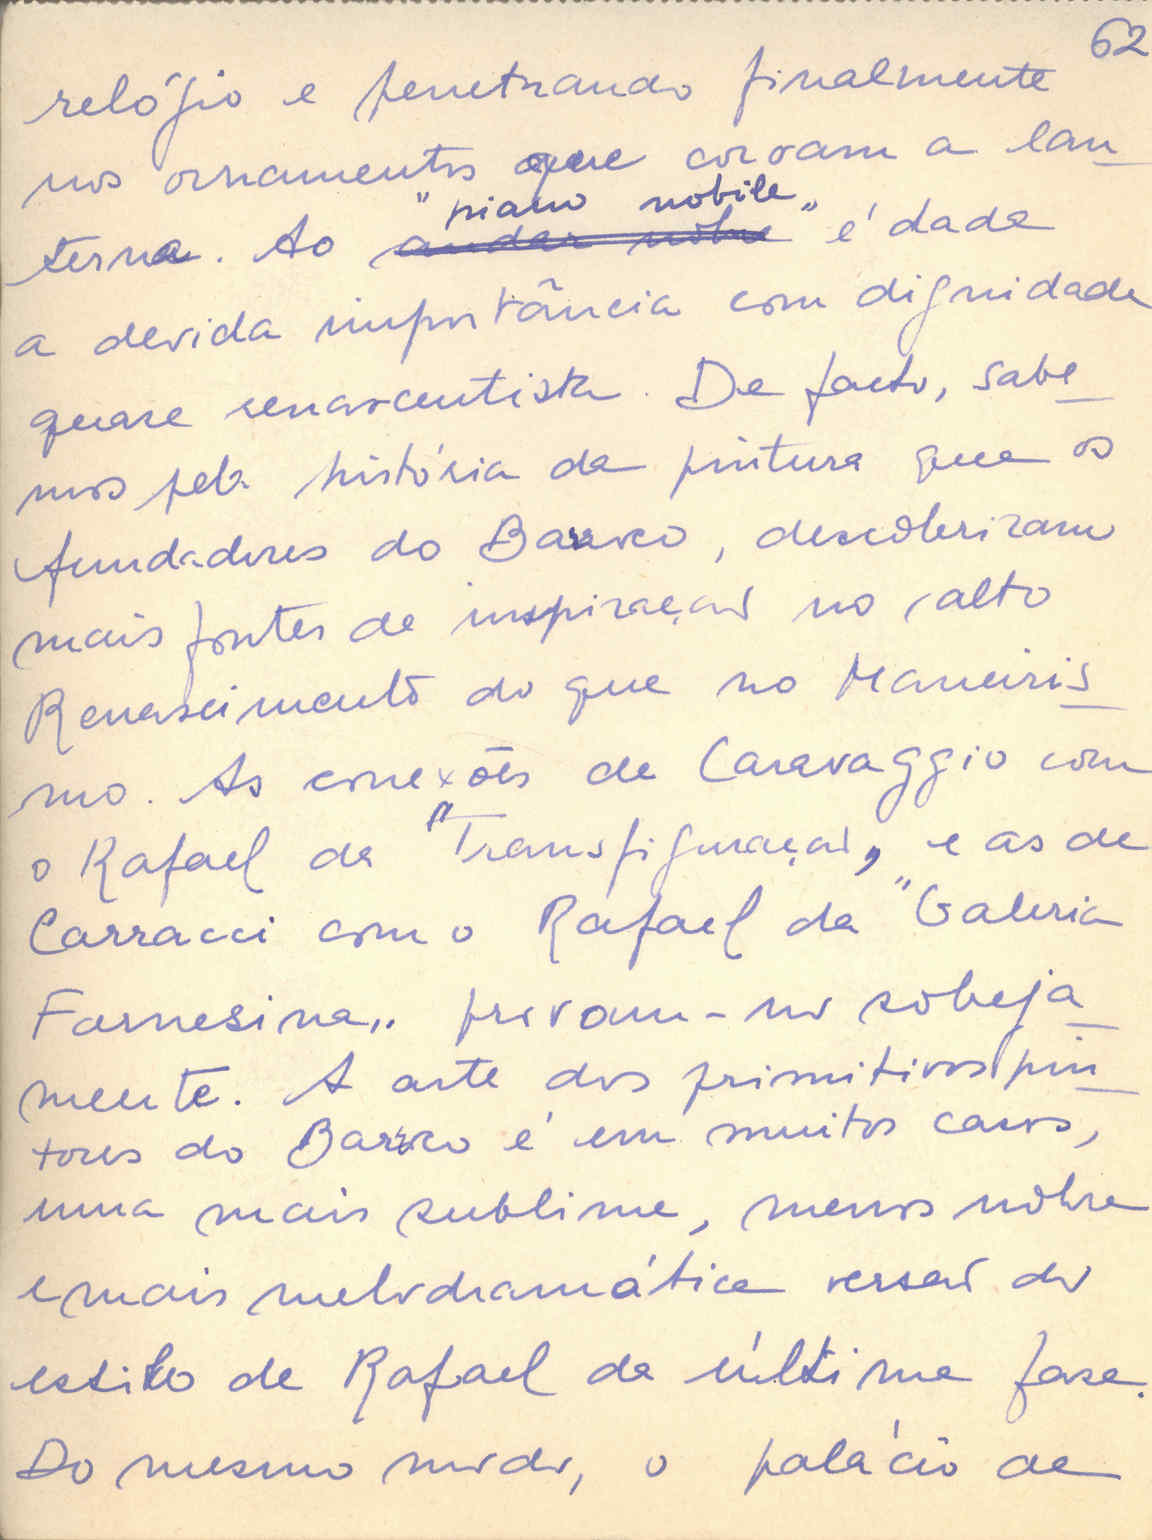 62
relógio e penetrando finalmente
nos ornamentos que coroam a lan-
terna. Ao "piano nobile" é dada
andar nobre
a devida importância com dignidade
quase renascentista. De facto, sabe-
mos pela história da pintura que os
fundadores do Barroco, descobriram
mais fontes de inspiração no alto
Renascimento do que no Maneiris-
mo. As conexões de Caravaggio com
o Rafael da "Transfiguração" e as de
Carracci com o Rafael da "Galeria
Farnesina" provam-no sobeja-
mente. A arte dos primitivos pin-
tores do Barroco é em muitos casos,
uma mais sublime, menos nobre
e mais melodramática versão do
estilo de Rafael da última fase.
Do mesmo modo, o palácio de